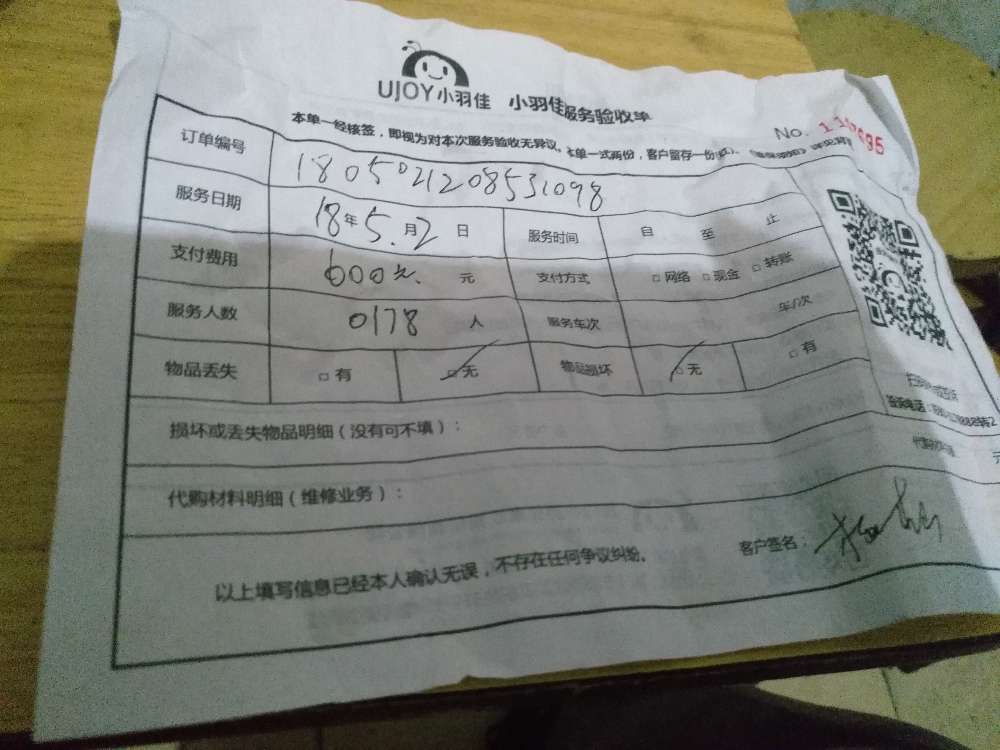 UJOY小羽佳 小羽佳服务验收单
本单一经核签，即视为对本次服务验收无异议。本单一式两份，客户留存一份
No.
订单编号 180502120853 1098
服务日期 18年5.月2日 服务时间 自 至 止
支付费用 600元 元 支付方式 □网络 □现金 □转账
服务人数 0178 人 服务车次 车/次
物品丢失 □有 □无 物品损坏 □无 □有
损坏或丢失物品明细（没有可不填）：
代购材料明细（维修业务）： 元
以上填写信息已经本人确认无误，不存在任何争议纠纷。 客户签名：